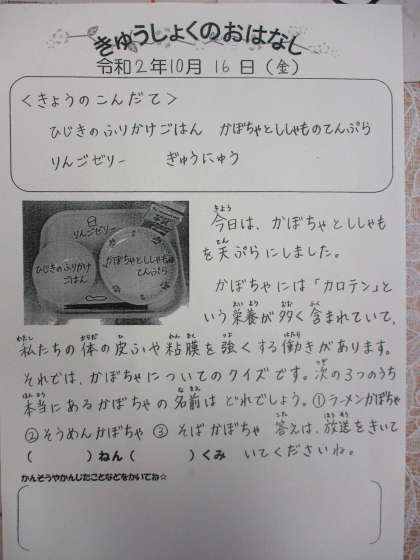 きゅうしょくのおはなし
令和2年10月16日(金)
<きょうのこんだて>
ひじきのふりかけごはん かぼちゃとししゃものてんぷら
りんごゼリー ぎゅうにゅう
りんごゼリー
ひじきのふりかけ
ごはん
かぼちゃとししゃもの
てんぷら
きょう
今日は、かぼちゃとししゃも
てん
を天ぷらにしました。
かぼちゃには「カロテン」と
えいよう おお ふく
いう栄養が多く含まれていて、
わたし からだ ひ ねんまく つよ はたら
私たちの体の皮ふや粘膜を強くする働きがあります。
つぎ
それでは、かぼちゃについてのクイズです。次の3つのうち
ほんとう なまえ
本当にあるかぼちゃの名前はどれでしょう。①ラーメンかぼちゃ
こた ほうそう
②そうめんかぼちゃ ③そばかぼちゃ 答えは、放送をきいて
( )ねん( )くみ いてくださいね。
かんそうやかんじたことなどをかいてね☆